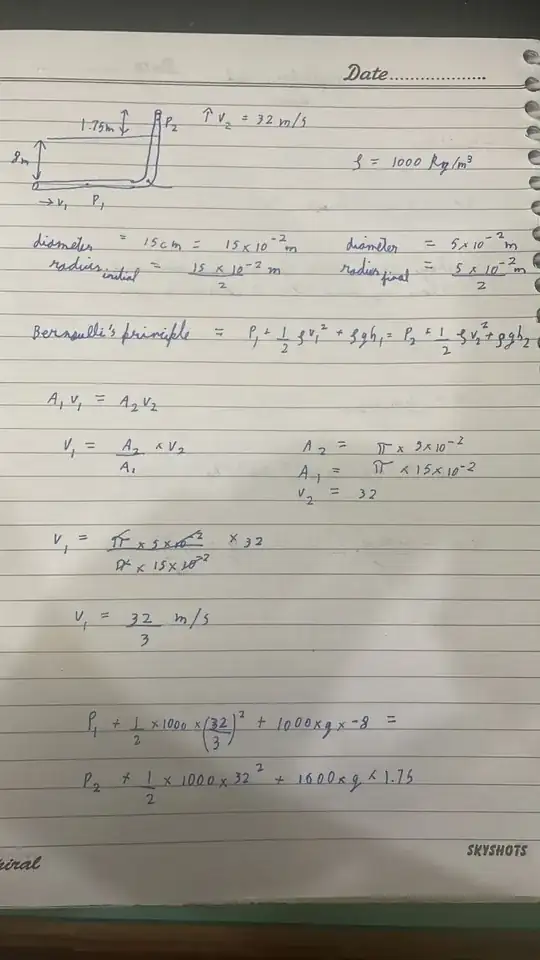 Date....................
1.75m P₂ ↑ V₂ = 32 m/s
8m
ρ = 1000 Kg/m³
→ V₁ P₁
diameter = 15cm = 15×10⁻² m diameter = 5×10⁻² m
radius initial = 15 × 10⁻² m / 2 radius final = 5 × 10⁻² m / 2
Bernoulli's principle = P₁ + 1/2 ρv₁² + ρgh₁ = P₂ + 1/2 ρv₂² + ρgh₂
A₁ V₁ = A₂ V₂
V₁ = A₂ / A₁ × V₂
A₂ = π × 5×10⁻²
A₁ = π × 15×10⁻²
V₂ = 32
V₁ = π × 5 × 10⁻² / π × 15 × 10⁻² × 32
V₁ = 32 / 3 m/s
P₁ + 1/2 × 1000 × (32/3)² + 1000 × g × -8 =
P₂ + 1/2 × 1000 × 32² + 1000 × g × 1.75
SKYSHOTS
piral